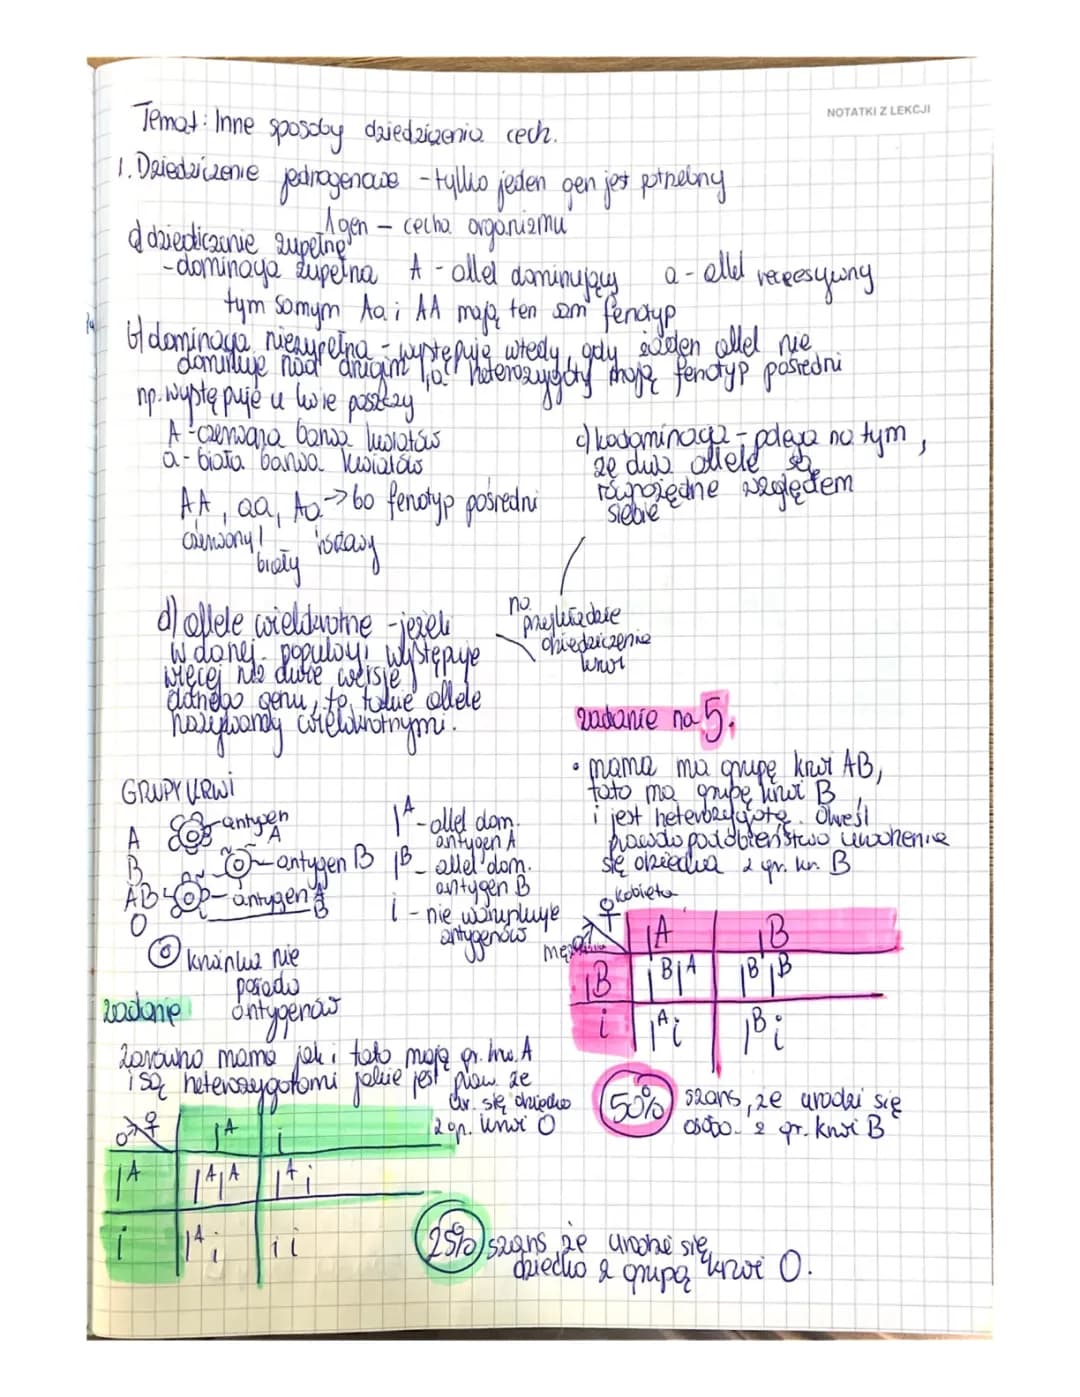 NOTATKI Z LEKCJI
Temat: Inne sposoby dziedziczenia cech.
1. Dziedziczenie jednogenowe - tylko jeden gen jest potrzebny
1 gen - cecha organizmu
a) dziedziczenie zupełne
- dominacja zupełna A - allel dominujący a - allel recesywny
tym samym Aa i AA mają ten sam fenotyp
b) dominacja niezupełna - występuje wtedy, gdy jeden allel nie
dominuje nad drugim, a heterozygoty mają fenotyp pośredni
np. występuje u lwie paszczy
A - czerwona barwa kwiatów
a - biała barwa kwiatów
AA, aa, Aa -> bo fenotyp pośredni
czerwony! biały różowy
c) kodominacja - polega na tym,
że dwa allele są
równorzędne względem
siebie
na
przykładzie
dziedziczenia
krwi
d) allele wielokrotne - jeżeli
w danej populacji występuje
więcej niż dwie wersje
danego genu, to takie allele
nazywamy wielokrotnymi.
GRUPY KRWI
A antygen A
B antygen B
AB antygen A B
O
krwinka nie
posiada
antygenów
I^A - allel dom.
antygen A
I^B - allel dom.
antygen B
i - nie warunkuje
antygenów
zadanie na 5.
• mama ma grupę krwi AB,
tato ma grupę krwi B
i jest heterozygotą. Określ
prawdopodobieństwo urodzenia
się dziecka z gr. kr. B
♀ kobieta
♂ mężczyzna
I^A I^B
I^B I^B I^A I^B I^B
i I^A i I^B i
50% szans, że urodzi się
osoba z gr. krwi B
zadanie
Zarówno mama jak i tato mają gr. krw. A
i są heterozygotami jakie jest praw. że
ur. się dziecko
z gr. krwi O
♂ ♀ I^A i
I^A I^A I^A I^A i
i I^A i i i
25% szans że urodzi się
dziecko z grupą krwi O.